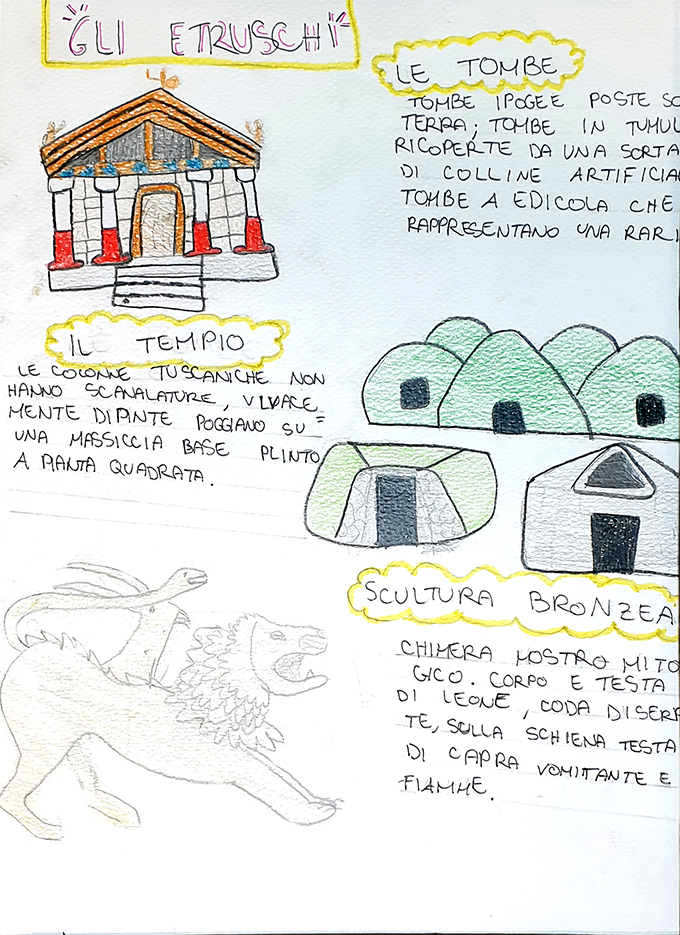 GLI ETRUSCHI
LE TOMBE
TOMBE IPOGEE POSTE SO
TERRA; TOMBE IN TUMUL
RICOPERTE DA UNA SORTA
DI COLLINE ARTIFICIA
TOMBE A EDICOLA CHE
RAPPRESENTANO UNA RARI
IL TEMPIO
LE COLONNE TUSCANICHE NON
HANNO SCANALATURE, VIVACE=
MENTE DIPINTE POGGIANO SU
UNA MASSICCIA BASE PLINTO
A PIANTA QUADRATA.
SCULTURA BRONZEA
CHIMERA MOSTRO MITO
GICO. CORPO E TESTA
DI LEONE, CODA DI SERPE
TE, SULLA SCHIENA TESTA
DI CAPRA VOMITANTE E
FIAMME.